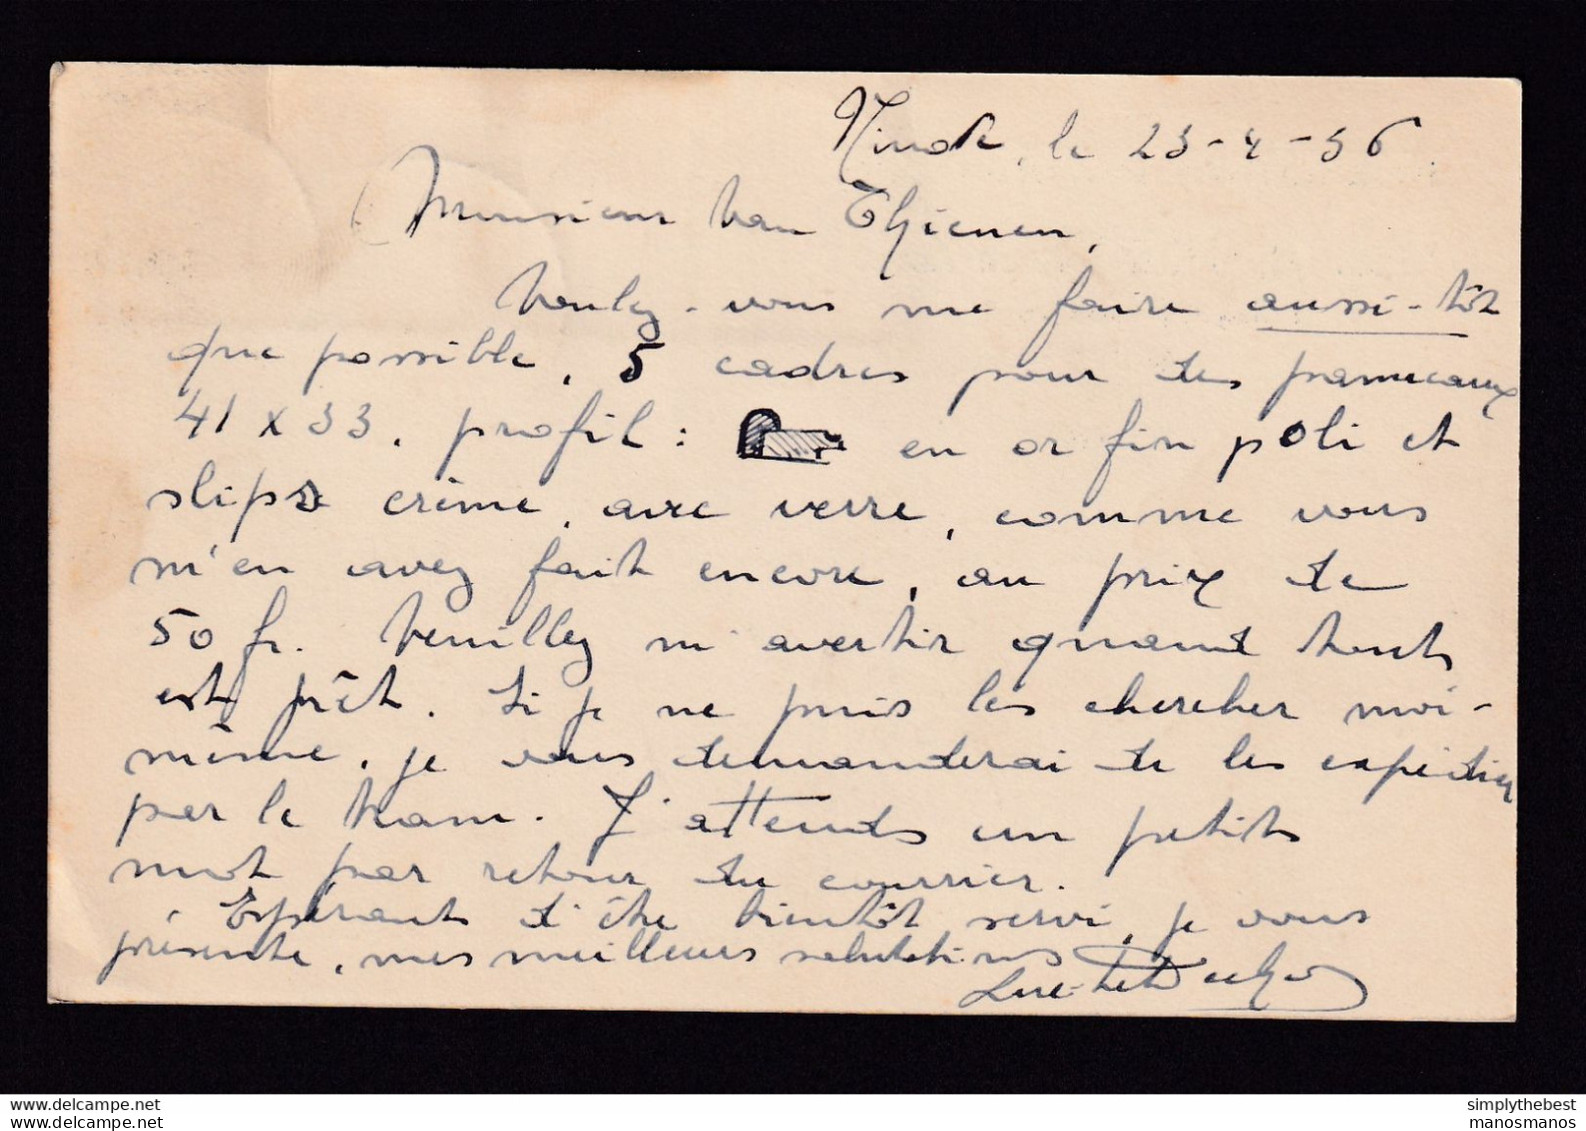 Ninove, le 23-4-36
Monsieur Van Thienen,
Voulez-vous me faire aussi-tôt
que possible, 5 cadres pour des panneaux
41 x 33, profil : en or fin poli et
slips crème, avec verre, comme vous
m'en avez fait encore, au prix de
50 fr. Veuillez m'avertir quand tout
est prêt. Si je ne puis les chercher moi-
même, je vous demanderai de les expédier
par le tram. J'attends un petit
mot par retour du courrier.
Espérant d'être bientôt servi, je vous
présente, mes meilleurs salutations
simplythebest
manosmanos